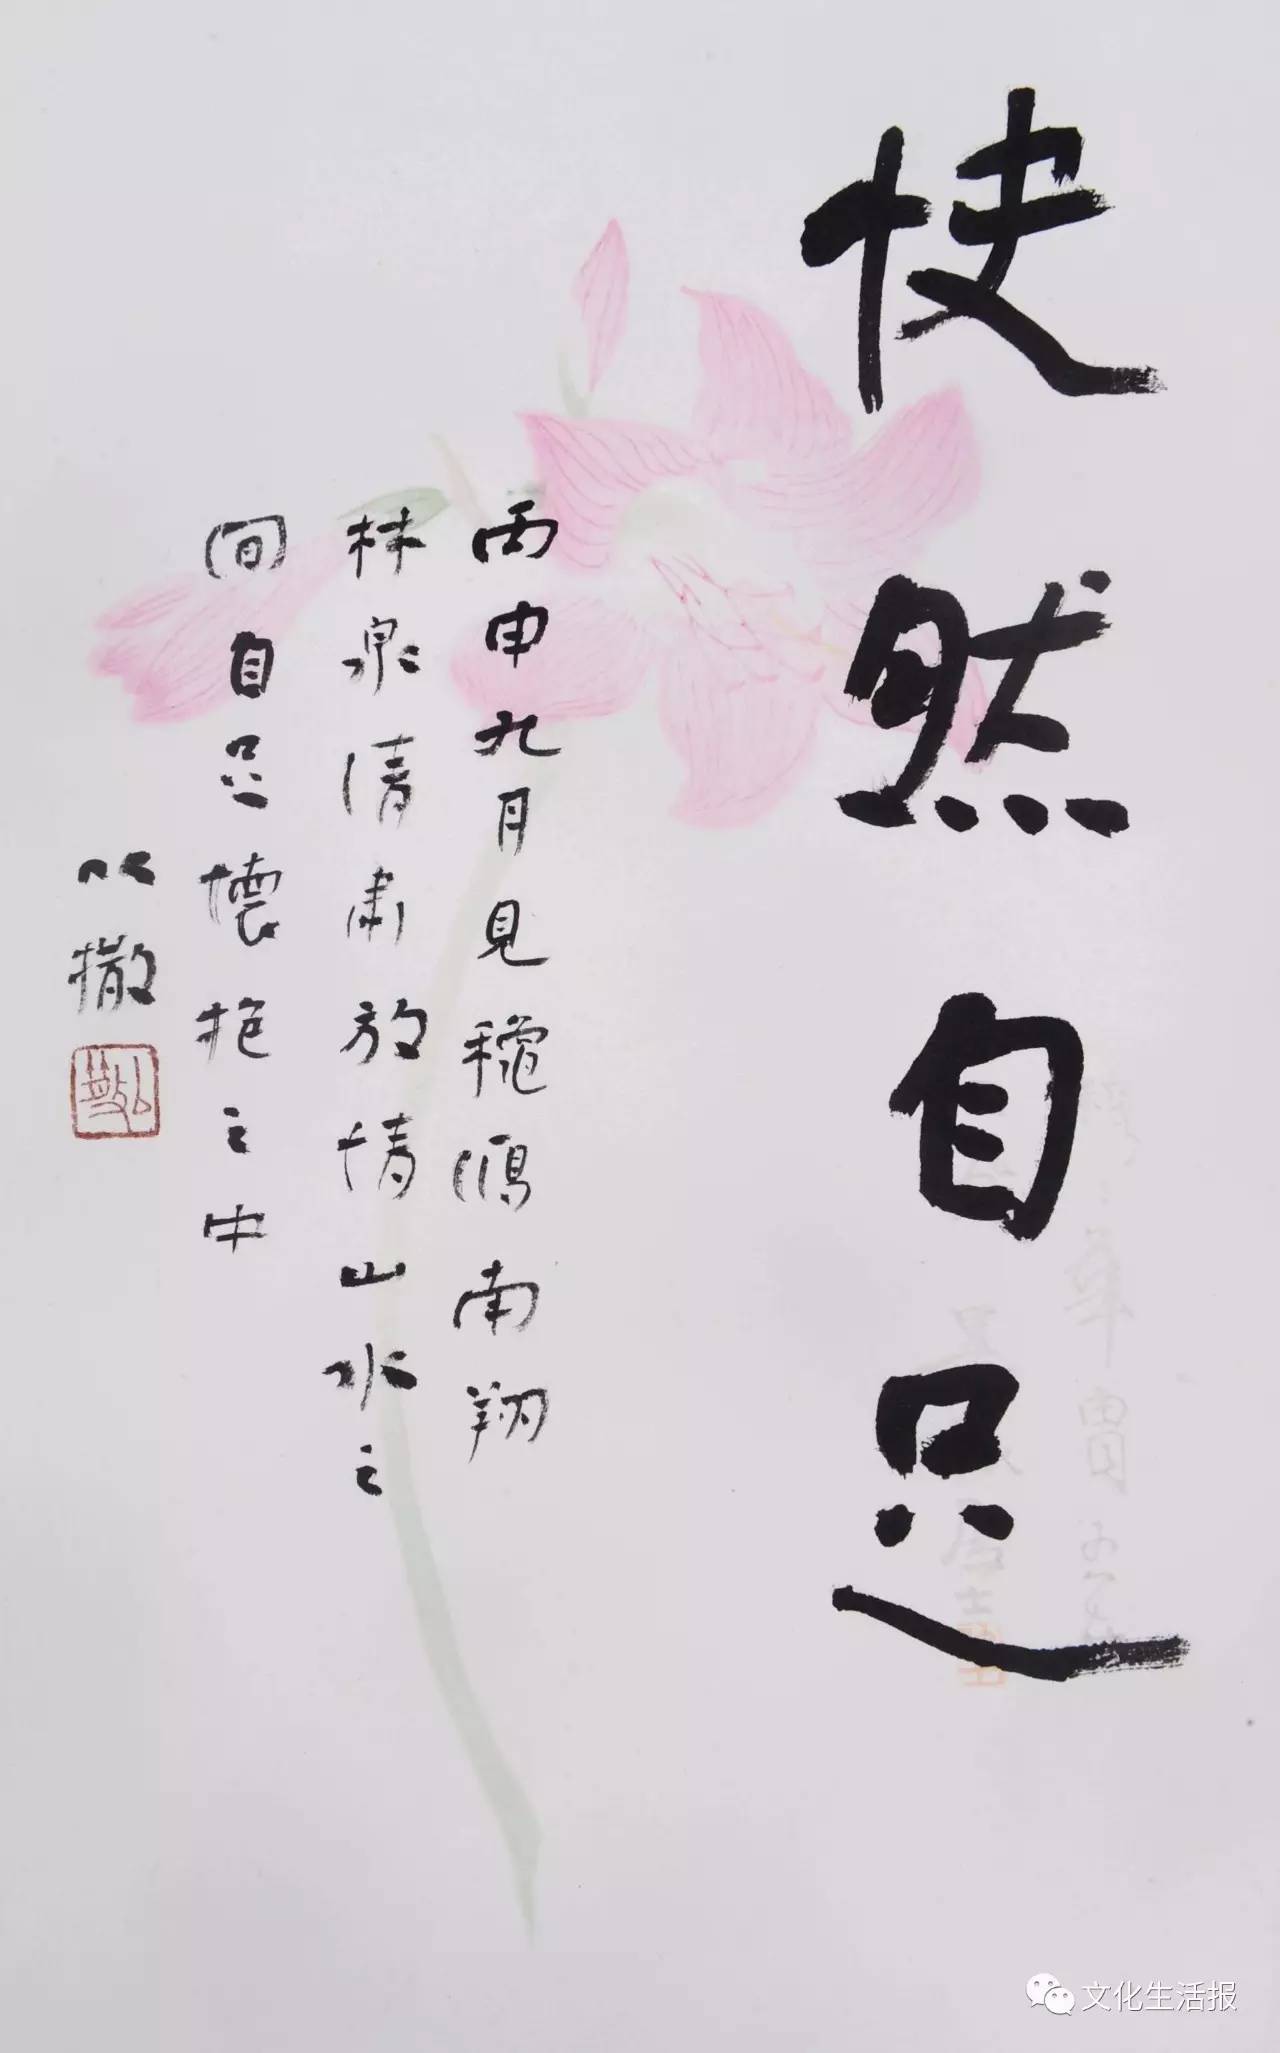 快然自足
丙申九月見穐鴻南翔
林泉清肅放情山水之
間自足懷抱之中
以撒
文化生活报